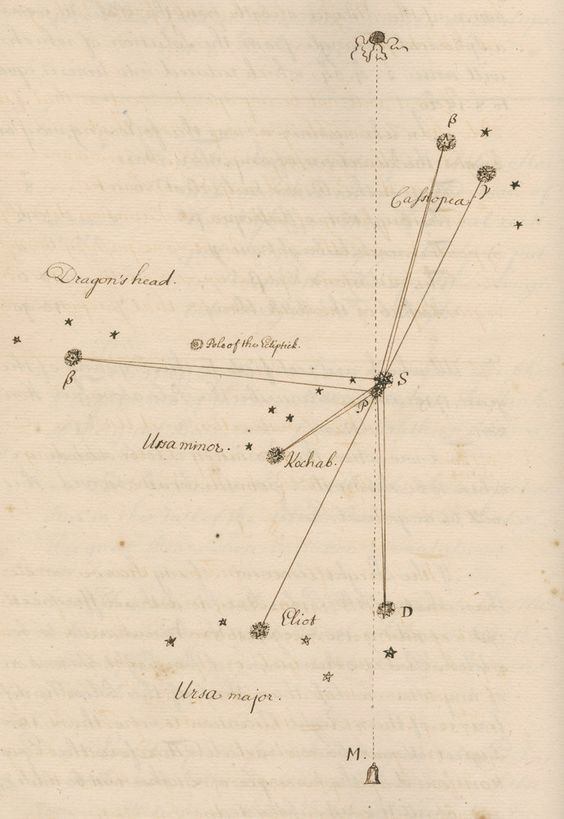 β
Cassiopea
γ
Dragon's head.
Pole of the Ecliptick.
β
S
P
Ursa minor.
Kochab.
D
Eliot
Ursa major.
M.